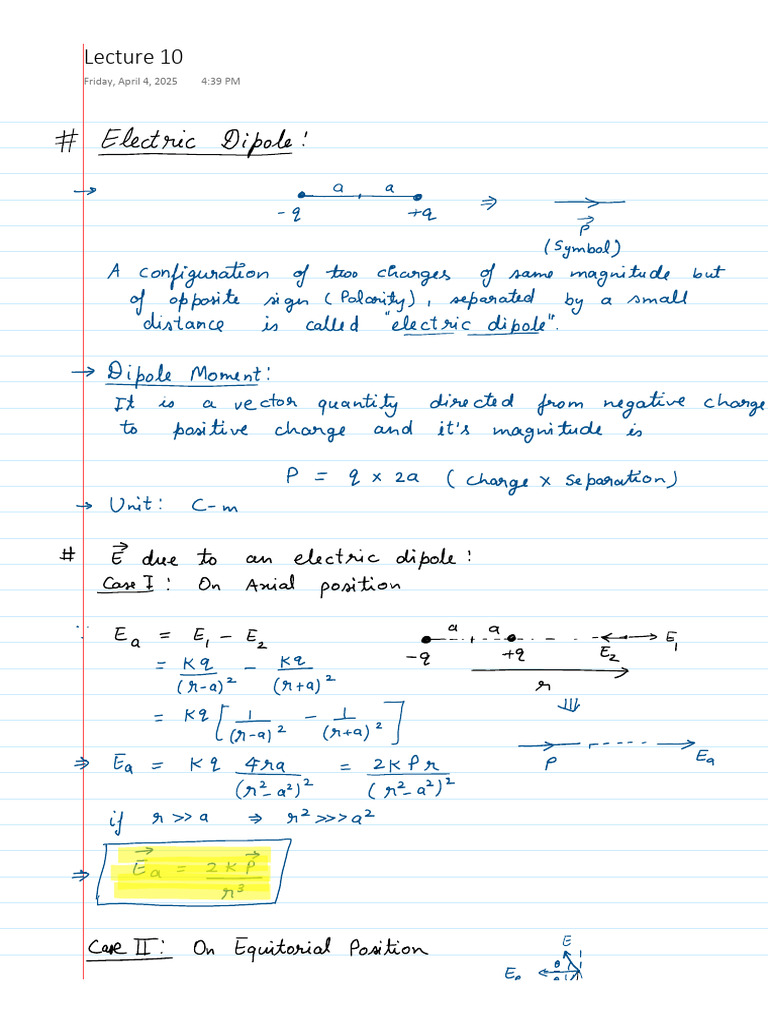 Lecture 10
Friday, April 4, 2025 4:39 PM
# Electric Dipole:
→ a a
-q +q ⇒ P⃗
(Symbol)
A configuration of two charges of same magnitude but
of opposite sign (Polarity), separated by a small
distance is called "electric dipole".
→ Dipole Moment:
It is a vector quantity directed from negative charge
to positive charge and it's magnitude is
P = q × 2a (charge × separation)
→ Unit: C-m
# E⃗ due to an electric dipole:
Case I: On Axial position
∵ Ea = E1 - E2
= Kq/(r-a)² - Kq/(r+a)²
= Kq [1/(r-a)² - 1/(r+a)²]
⇒ Ea = Kq 4ra/(r²-a²)² = 2KPr/(r²-a²)²
a a
-q +q E2 E1
r
⇓
P Ea
if r >> a ⇒ r² >>> a²
⇒ E⃗a = 2KP⃗/r³
Case II: On Equitorial Position
E
θ